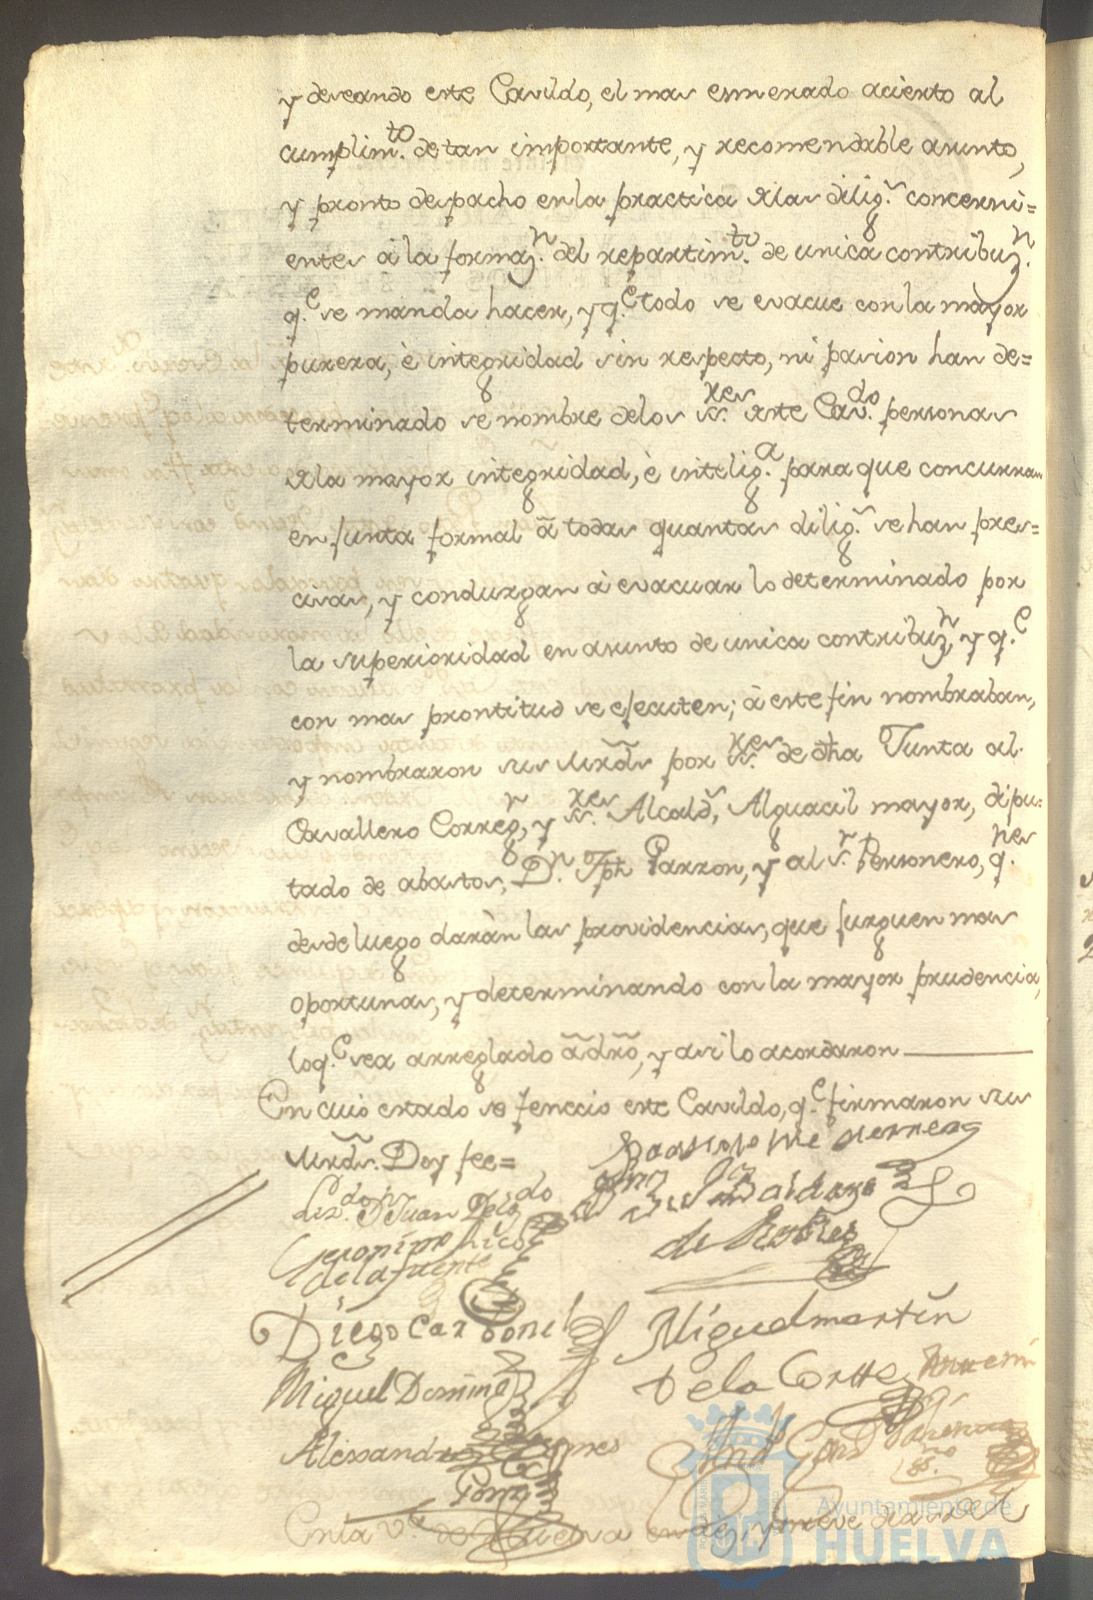 y deseando este Cavildo, el mas esmerado acierto al
cumplim.to de tan importante, y recomendable asunto,
y pronto despacho en la practica de las dilig.s concerni=
entes à la formaz.n del repartim.to de unica contribuz.n
q.e se manda hacer, y q.e todo se evacue con la mayor
pureza, è integridad sin respecto, ni pasion han de=
terminado se nombre de los ss.res deste Cav.do personas
de la mayor integridad, è intelig.a para que concurran
en junta formal à todas quantas dilig.s se han pres=
cisas, y conduzgan à evacuar lo determinado por
la superioridad en asunto de unica contribuz.n, y q.e
con mas prontitud se ejecuten; à este fin nombraban,
y nombraron sus mrds por ss.res de dha Junta al
Cavallero Correg.r, y ss.res Alcalds, Alguacil mayor, dipu=
tado de abastos, D.n Jph Garzon, y al s.r Personero, q.nes
desde luego daràn las providencias, que juzguen mas
oportunas, y determinando con la mayor prudencia,
loq.e sea arreglado à dro, y asi lo acordaron
En cuio estado se fenecio este Cavildo, q.e firmaron sus
mrds. Doy fee=
Liz.do D.n Juan
Geronimo Rico
de la fuente
de Robles
Diego Carbonel
Miguel martin
Miguel Domin.
de la Corte
Alessandro
Ponze
En la V.a de Huelva en diez y nueve dias del
Ayuntamiento de
HUELVA